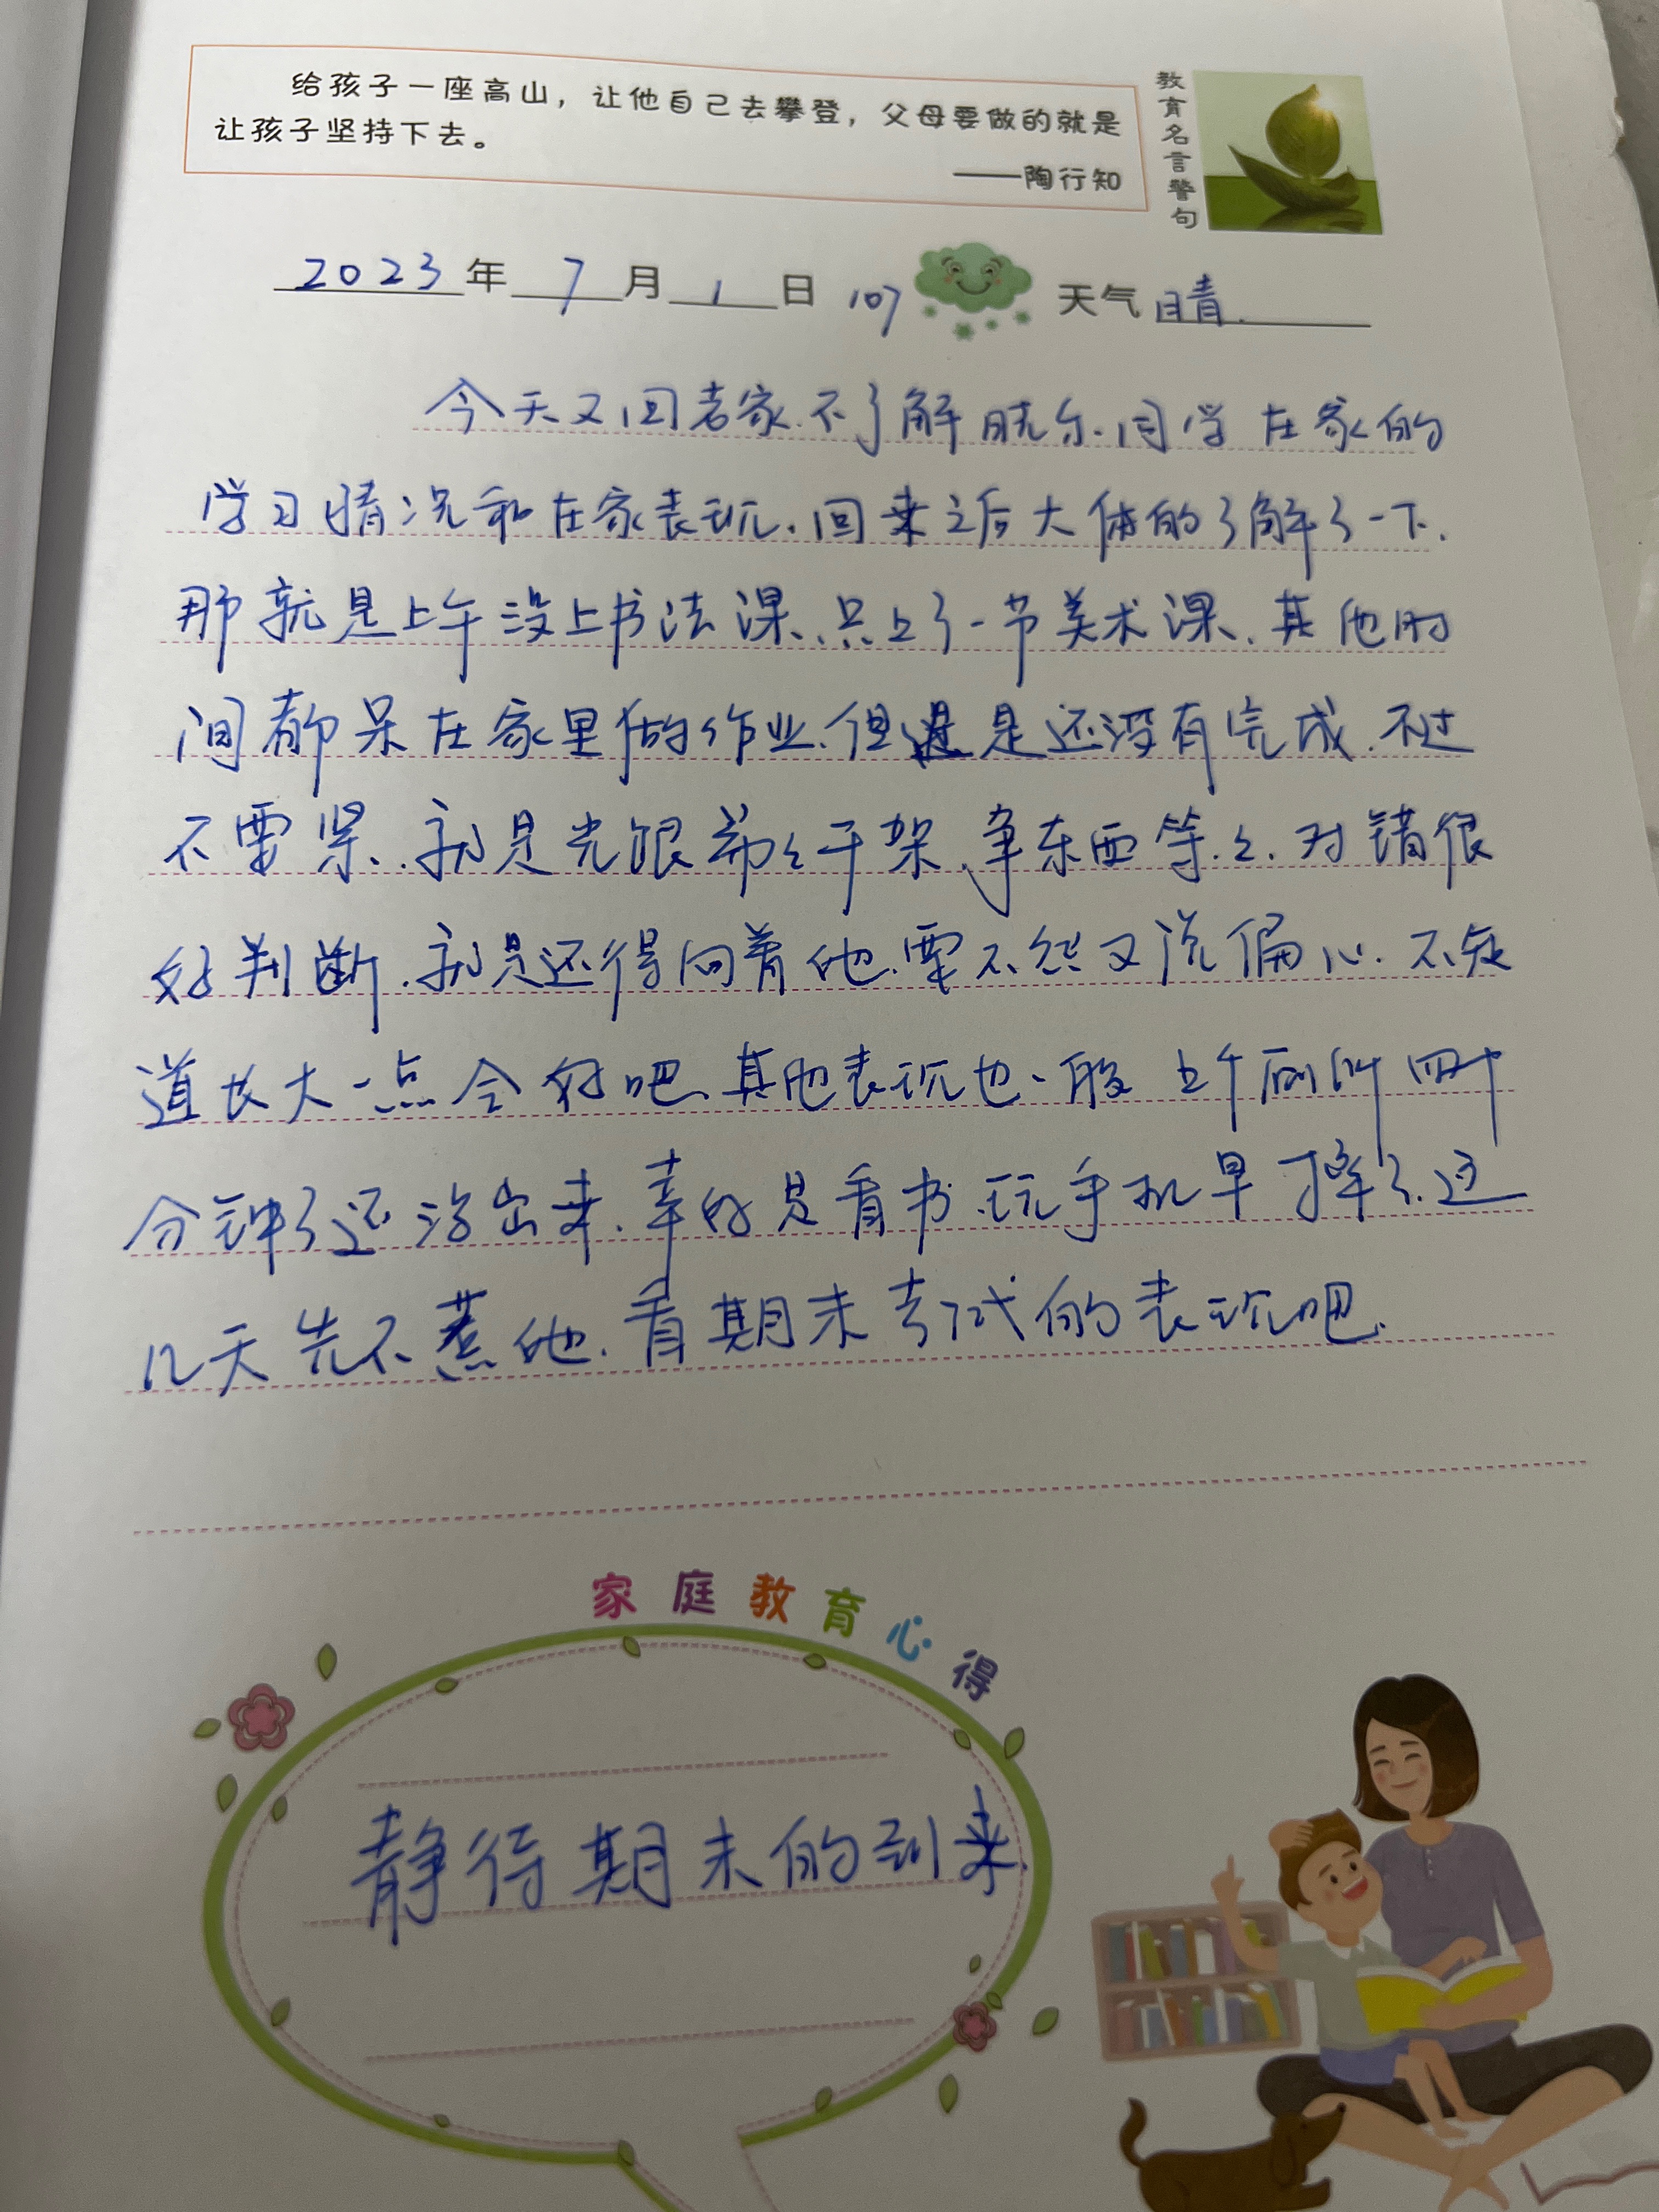 给孩子一座高山，让他自己去攀登，父母要做的就是
让孩子坚持下去。
——陶行知
教育名言警句
2023年7月1日 107 天气晴.
今天又回老家.不了解晓尔.同学在家的
学习情况和在家表现.回来之后大体的了解了一下.
那就是上午没上书法课.只上了一节美术课.其他时
间都呆在家里做作业.但是还没有完成.不过
不要紧.就是光跟弟弟干架.争东西等等.对错很
好判断.就是还得向着他.要不然又说偏心.不知
道长大一点会好吧.其他表现也一般 上午厕所四十
分钟了还没出来.幸好是看书.玩手机早打择了.这
几天先不惹他.看期末考试的表现吧.
家庭教育心得
静待期末的到来.